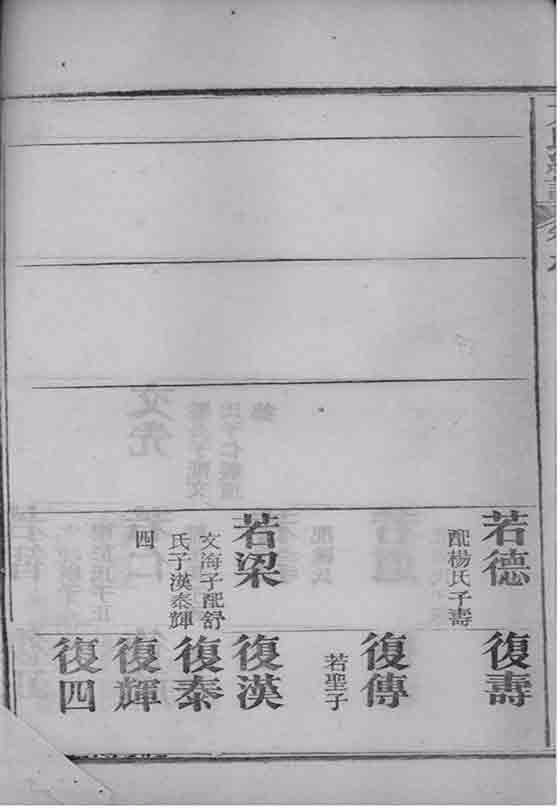 若德
配楊氏子壽
若梁
文海子配舒
氏子漢泰輝
四
復壽
復傳
若聖子
復漢
復泰
復輝
復四